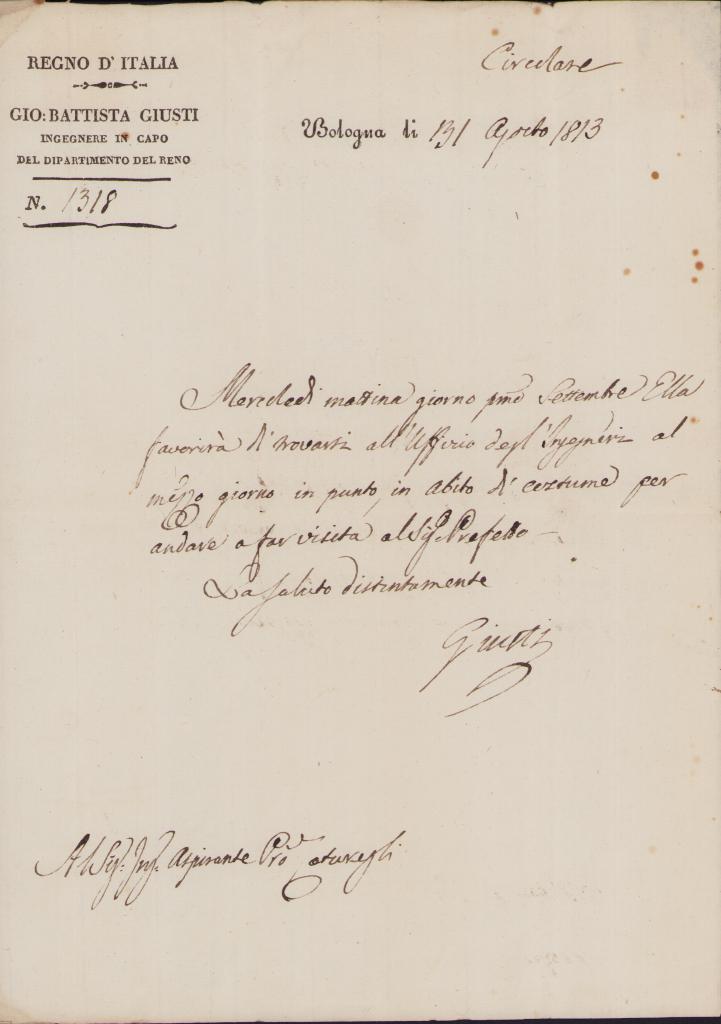 Circolare
REGNO D' ITALIA
GIO: BATTISTA GIUSTI
INGEGNERE IN CAPO
DEL DIPARTIMENTO DEL RENO
N. 1318
Bologna li 31 Agosto 1813
Mercoledì mattina giorno pmo Settembre Ella
favorirà di trovarsi all'Uffizio degl'Ingegneri al
mezzo giorno in punto, in abito di costume per
andare a far visita al Sig. Prefetto
La saluto distintamente
Giusti
Al Sig. Ing. Aspirante